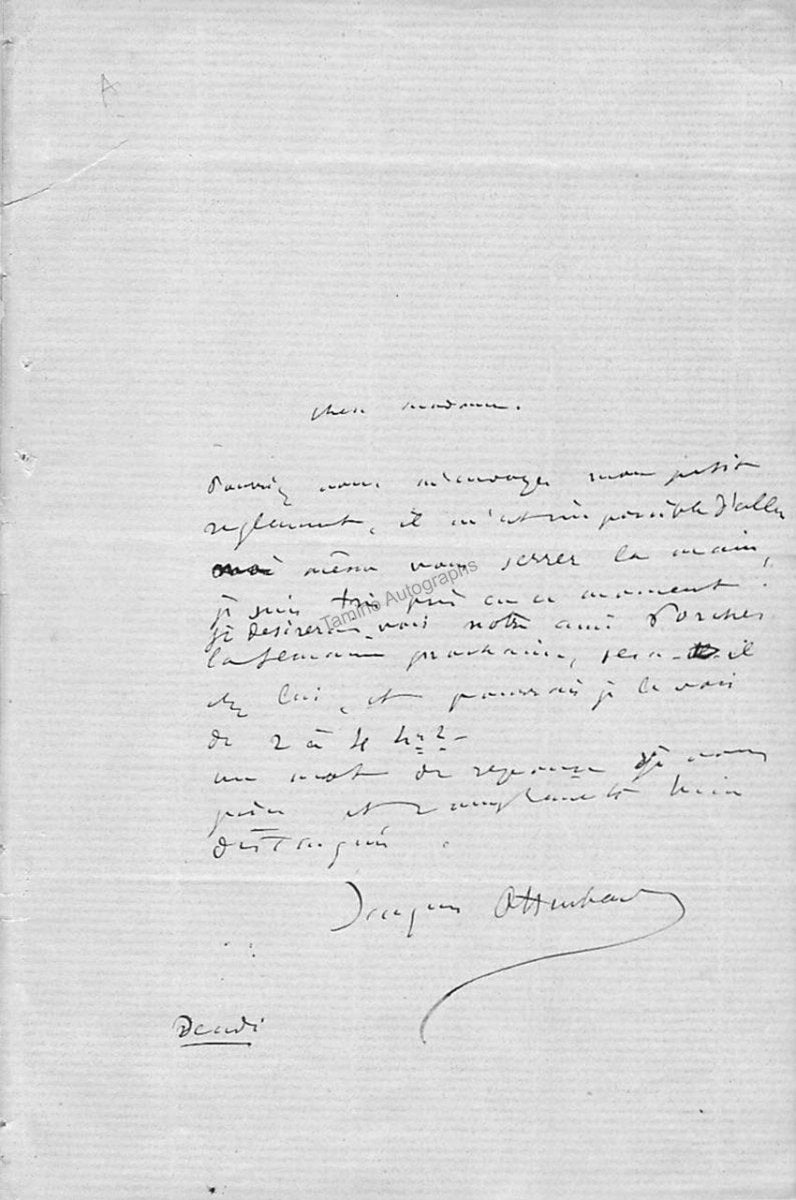 A
chere madame.
Pouvez vous m'envoyer mon petit
reglement, il m'est impossible d'aller
moi même vous serrer la main,
je suis très pris en ce moment.
je desirerais voir notre ami Porcher
la semaine prochaine, sera-t-il
chez lui, et pourrais je le voir
de 2 à 4 h
un mot de reponse je vous
prie et compliments bien
distingués.
Jacques Offenbach
Tamino Autographs